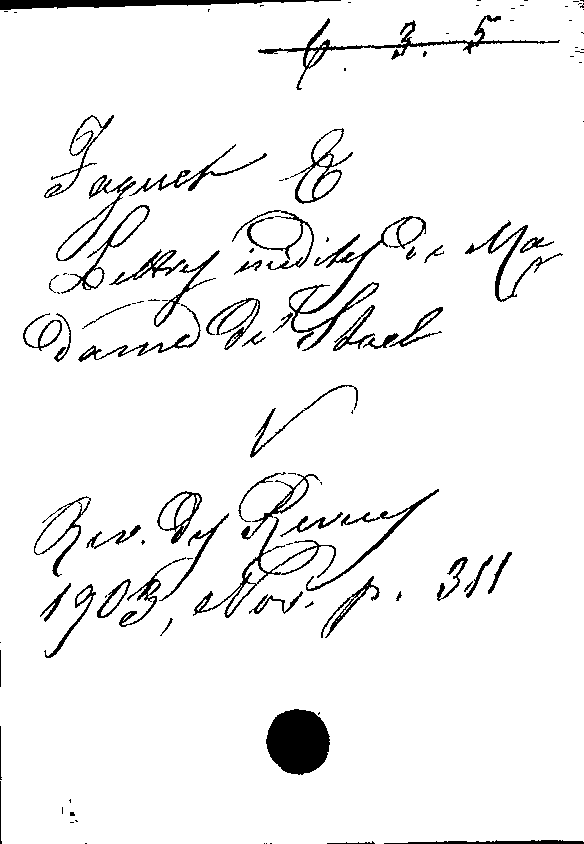 6. 3. 5
Faguet E
Lettres inédites de Ma
dame de Stael
V
Rev. des Revues
1903, Nov. p. 311